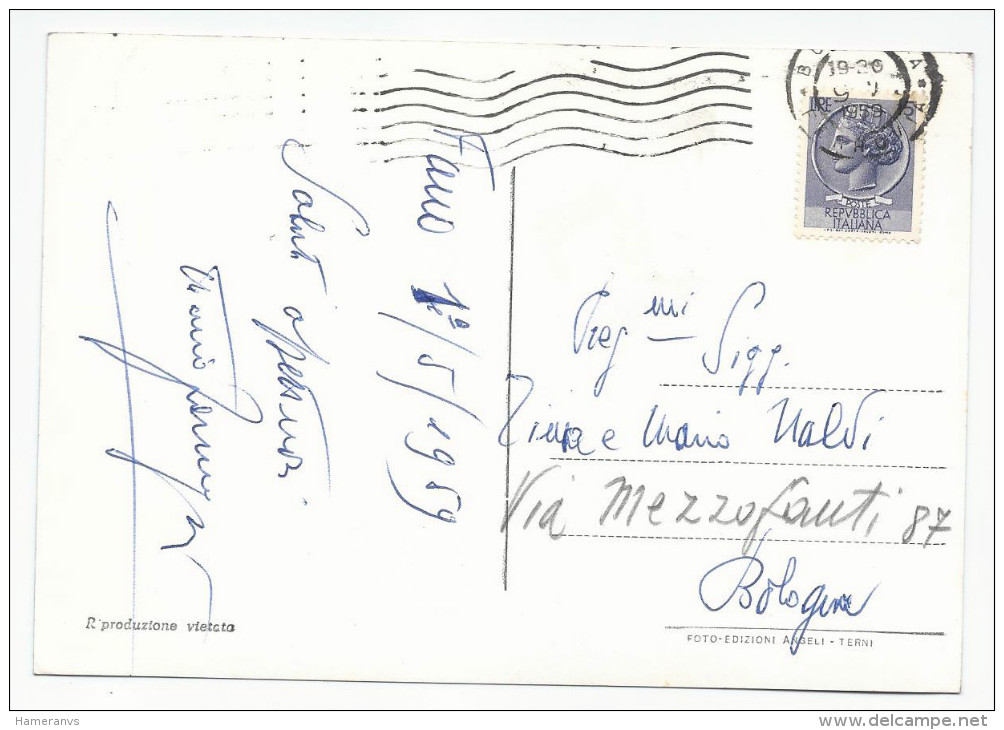 Fano 1º/5/1959
Saluti affettuosi
Mario
R'produzione vietata
19-20
1959
LIRE
POSTE
REPVBBLICA
ITALIANA
Preg mi Sigg.
e Mario Naldi
Via Mezzofanti 87
Bologna
FOTO-EDIZIONI ANGELI - TERNI
Hameranvs
delcampe.net